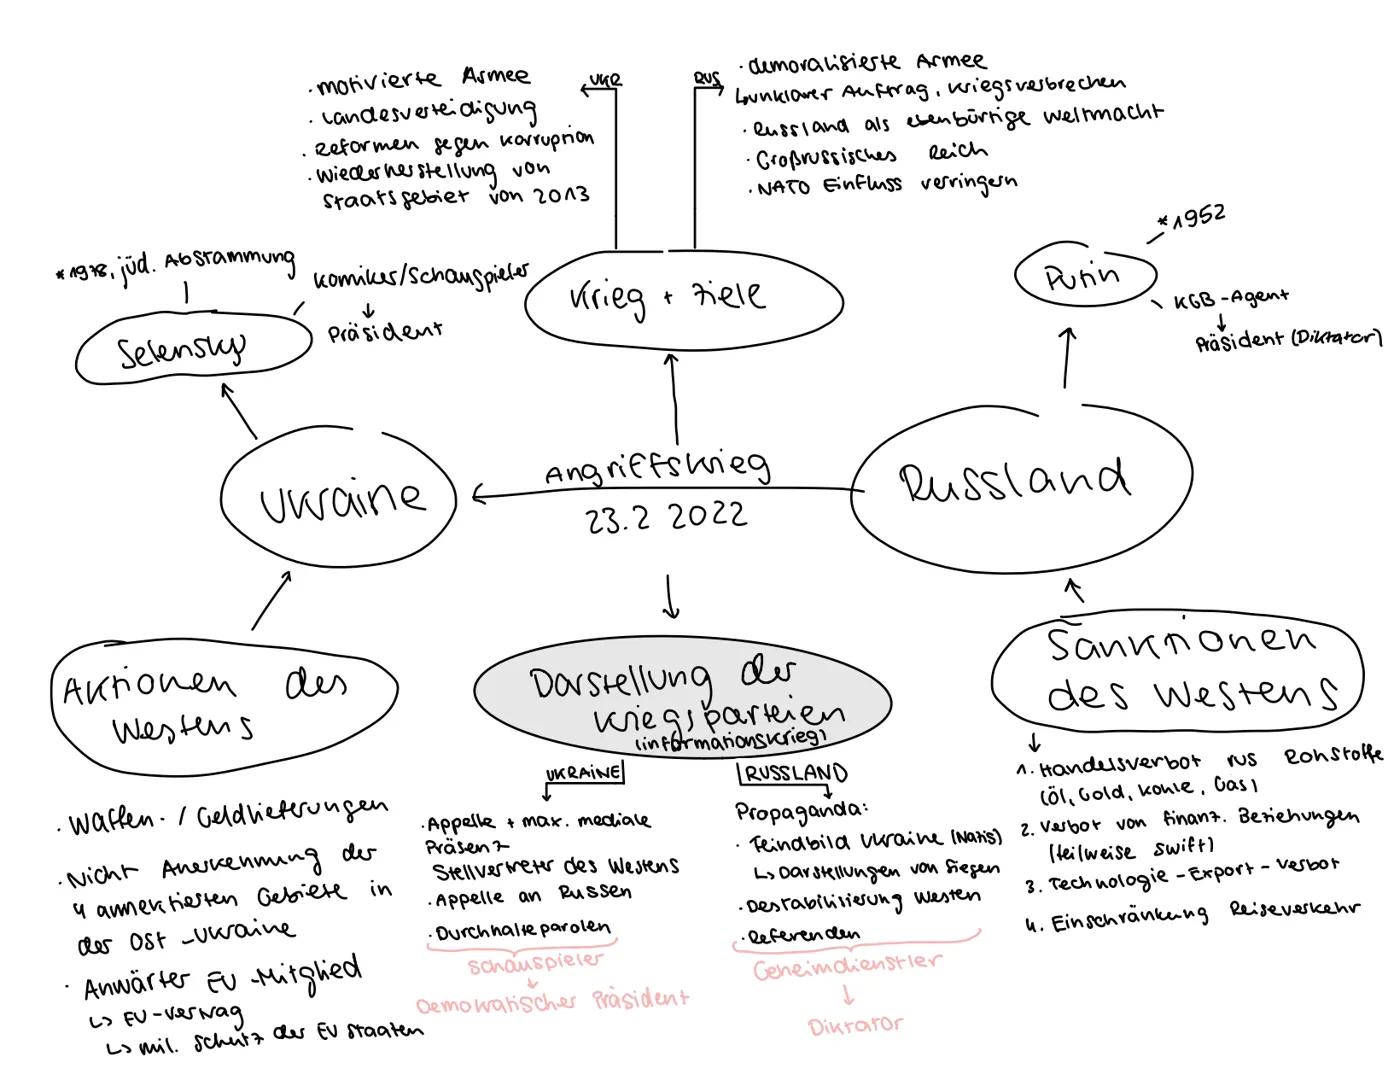 UKR
· motivierte Armee
· Landesverteidigung
· Reformen gegen Korruption
· Wiederherstellung von
Staatsgebiet von 2013
RUS
· demoralisierte Armee
↳ unklarer Auftrag, Kriegsverbrechen
· Russland als ebenbürtige Weltmacht
· Großrussisches Reich
· NATO Einfluss verringern
Krieg + Ziele
*1978, jüd. Abstammung
Komiker/Schauspieler
↓
Präsident
Selensky
Putin
*1952
KGB-Agent
↓
Präsident (Diktator)
Ukraine
Angriffskrieg
23.2 2022
Russland
Aktionen des
Westens
· Waffen- / Geldlieferungen
· Nicht Anerkennung der
4 annektierten Gebiete in
der Ost-Ukraine
· Anwärter EU-Mitglied
↳ EU-Vertrag
↳ mil. Schutz der EU Staaten
Darstellung der
Kriegsparteien
(informationskrieg)
UKRAINE
· Appelle + max. mediale
Präsenz
Stellvertreter des Westens
· Appelle an Russen
· Durchhalteparolen
Schauspieler
↓
Demokratischer Präsident
RUSSLAND
Propaganda:
· Feindbild Ukraine (Nazis)
↳ Darstellungen von Siegen
· Destabilisierung Westen
· Referenden
Geheimdienstler
↓
Diktator
Sanktionen
des Westens
1. Handelsverbot rus Rohstoffe
(Öl, Gold, Kohle, Gas)
2. Verbot von finanz. Beziehungen
(teilweise swift)
3. Technologie-Export-Verbot
4. Einschränkung Reiseverkehr